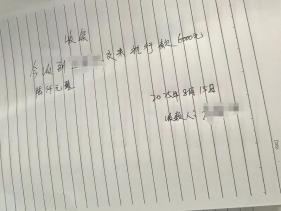 收条
今收到 交来执行款6000元
陆仟元整
2025年8月15日
收款人: